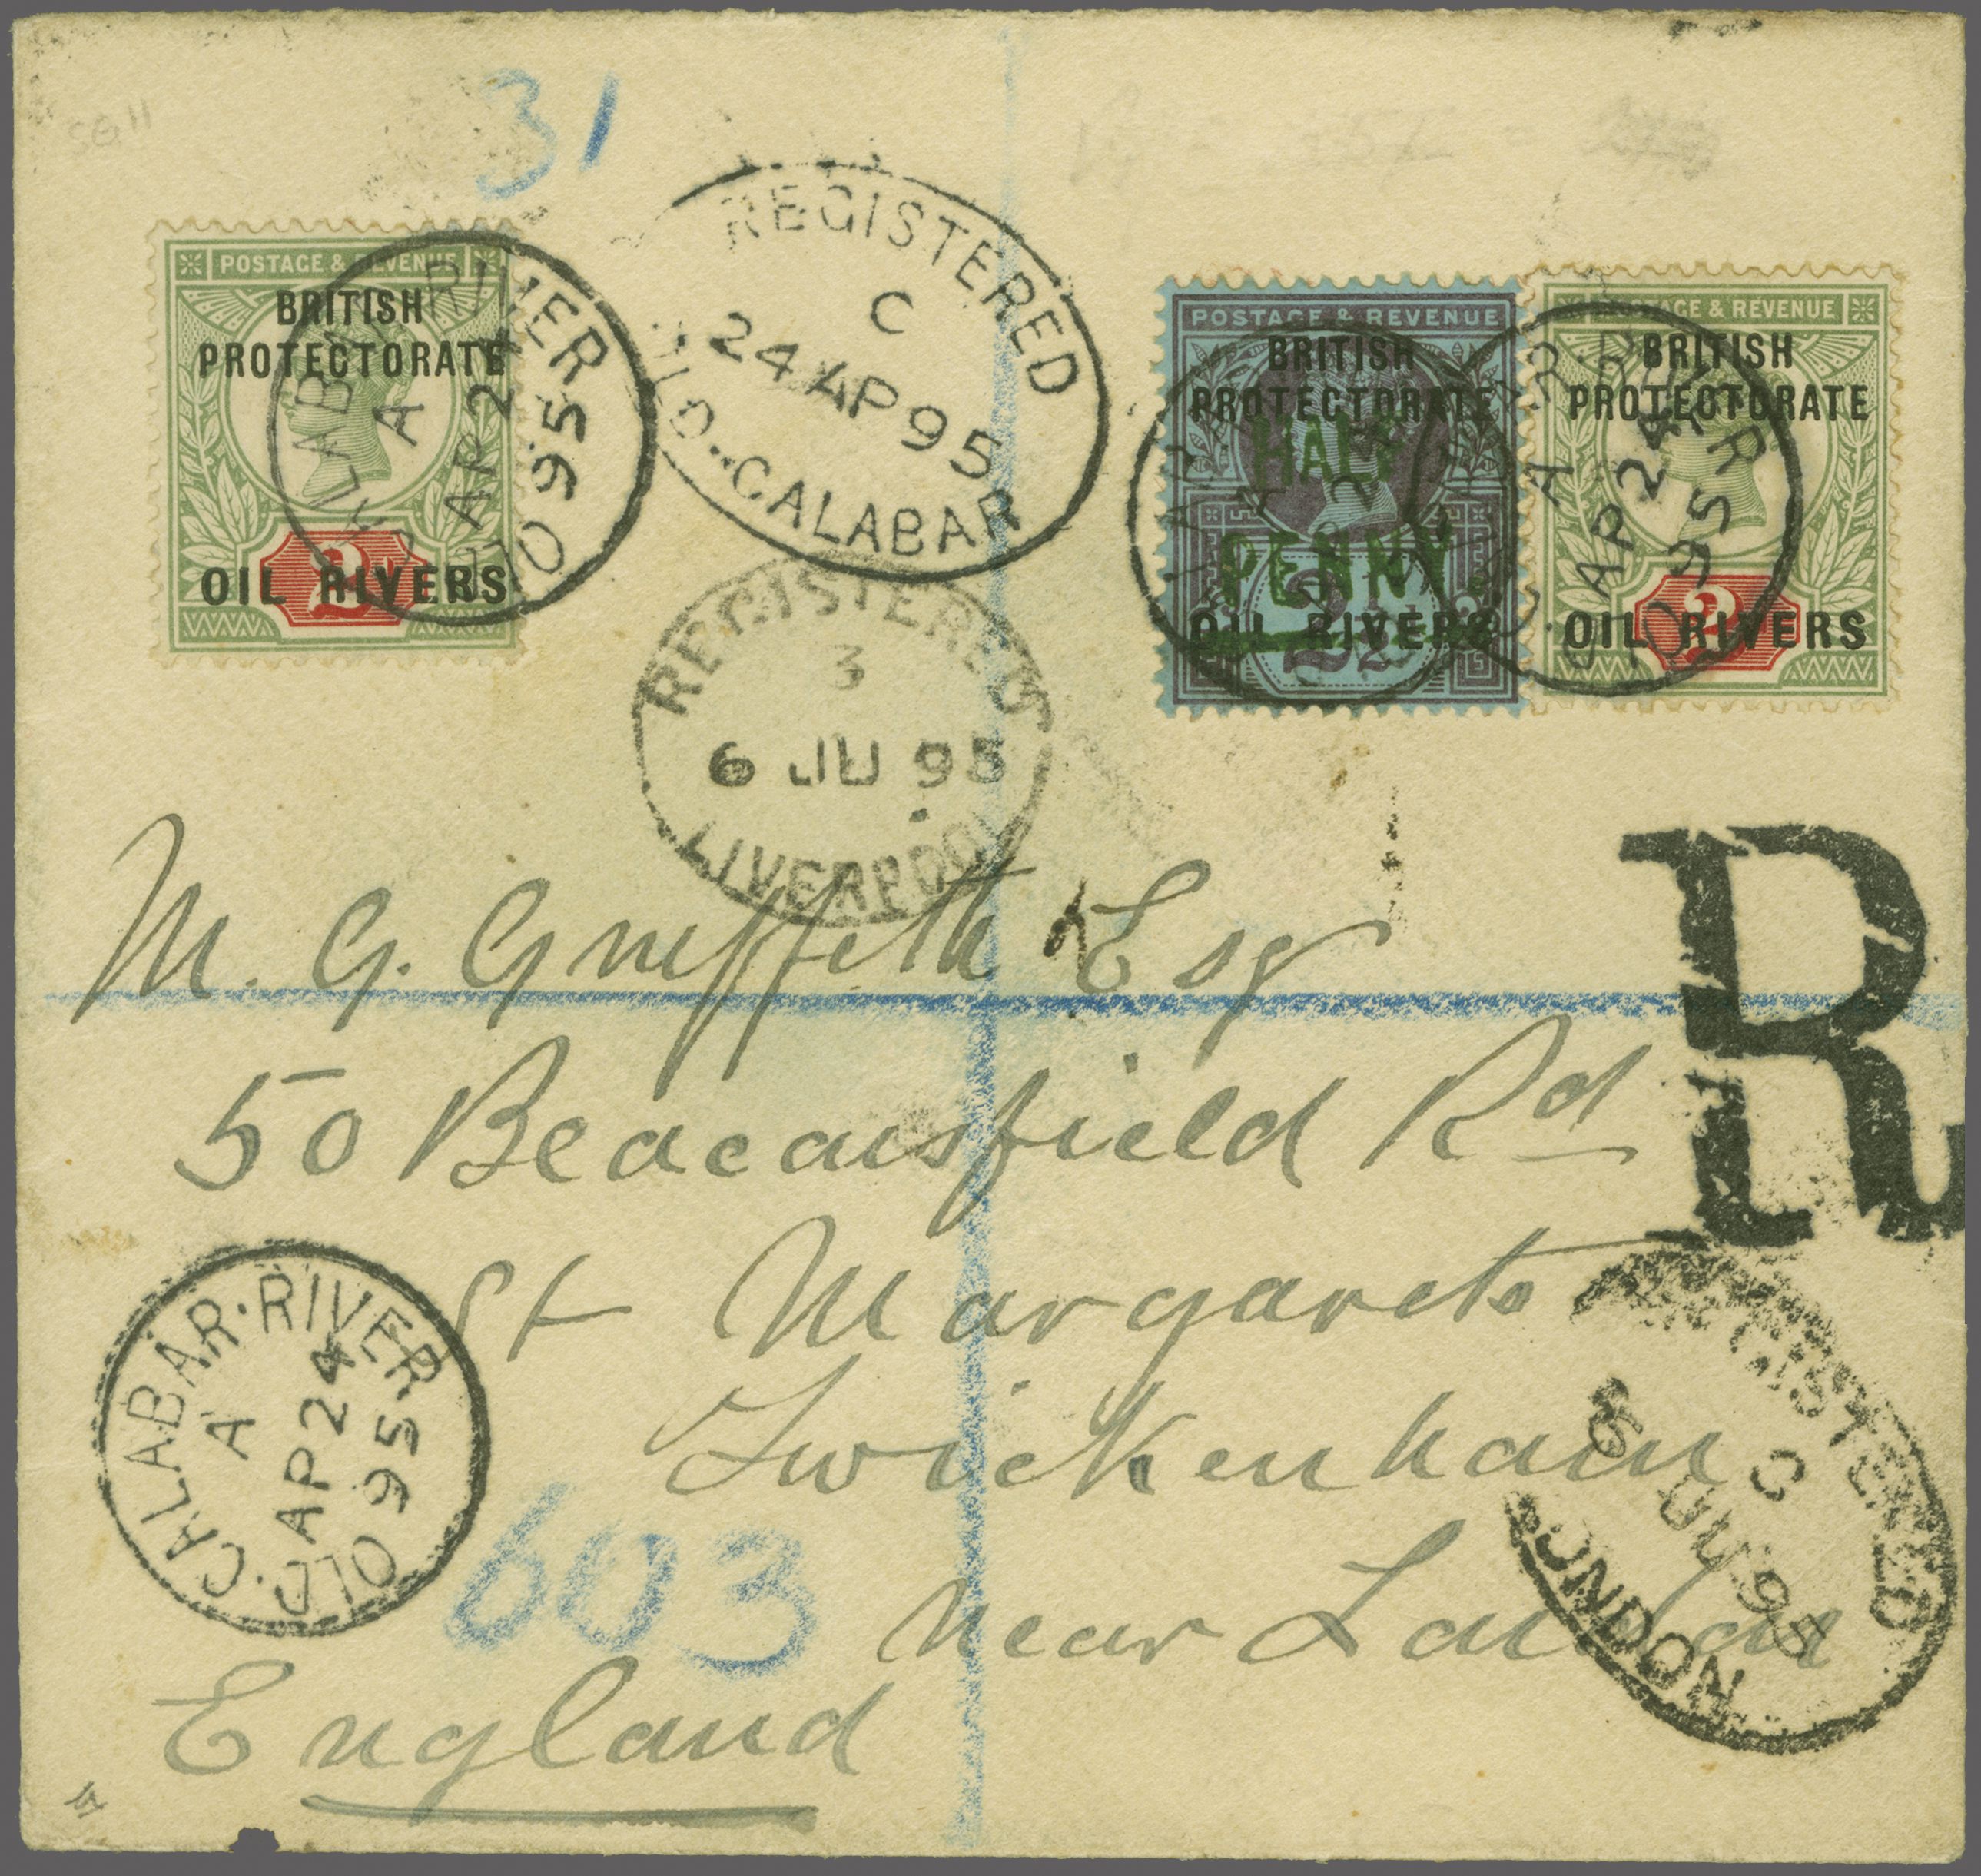 31
SG 11
POSTAGE & REVENUE
BRITISH
PROTECTORATE
OIL RIVERS
2
OLD·CALABAR·RIVER
A
AP 24
95
REGISTERED
C
24 AP 95
OLD..CALABAR
POSTAGE & REVENUE
BRITISH
PROTECTORATE
HALF
PENNY.
OIL RIVERS
2½
POSTAGE & REVENUE
BRITISH
PROTECTORATE
OIL RIVERS
2
A
AP 24
95
REGISTERED
3
6 JU 95
LIVERPOOL
R
M. G. Griffith Esq
50 Beacausfield Rd
St Margarets
Twickenham
near London
England
OLD·CALABAR·RIVER
A
AP 24
95
603
REGISTERED
C
6 JU 95
LONDON